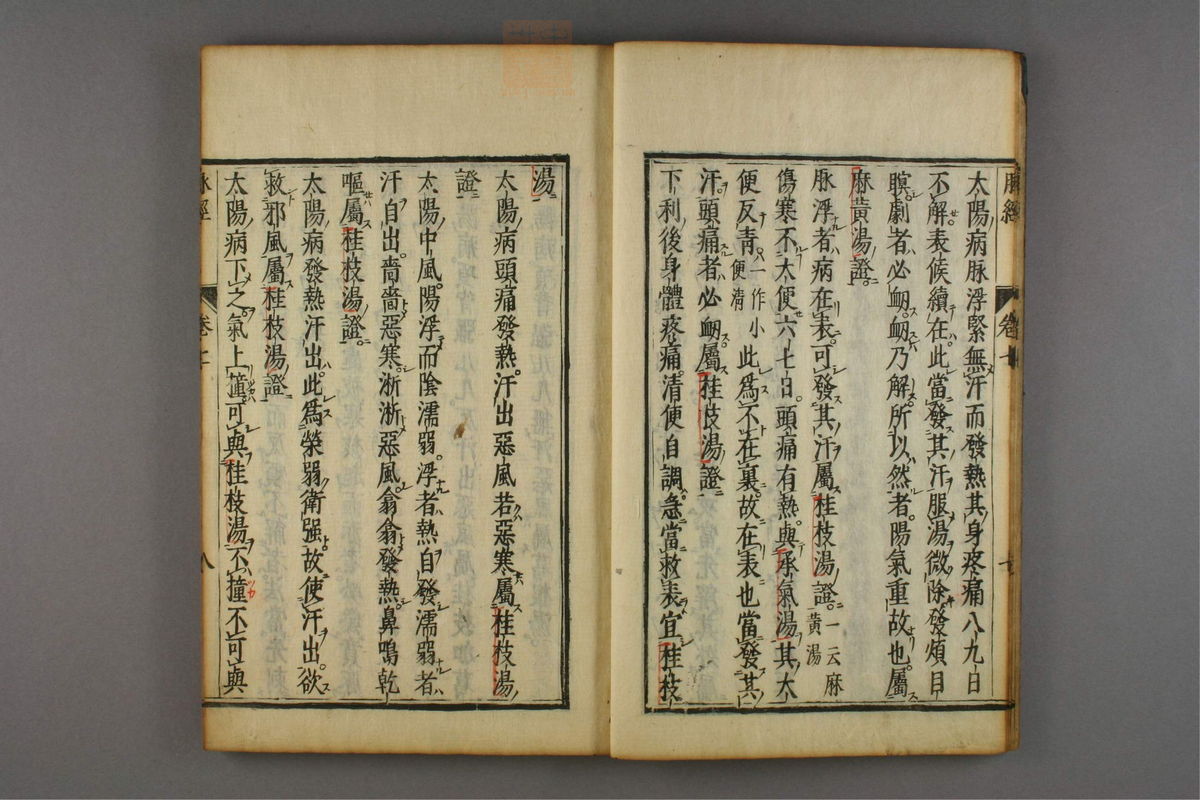 脉經 卷七 七
太陽病脉浮緊無汗而發熱其身疼痛八九日
不解表候續在此當發其汗服湯微除發煩目
瞑劇者必衂衂乃解所以然者陽氣重故也屬
麻黃湯證
脉浮者病在表可發其汗屬桂枝湯證一云麻黃湯
傷寒不大便六七日頭痛有熱與承氣湯其大
便反青一作小便清此爲不在裏故在表也當發其
汗頭痛者必衂屬桂枝湯證
下利後身體疼痛清便自調急當救表宜桂枝
湯
太陽病頭痛發熱汗出惡風若惡寒屬桂枝湯
證
太陽中風陽浮而陰濡弱浮者熱自發濡弱者
汗自出嗇嗇惡寒淅淅惡風翕翕發熱鼻鳴乾
嘔屬桂枝湯證
太陽病發熱汗出此爲榮弱衛强故使汗出欲
救邪風屬桂枝湯證
太陽病下之氣上撞可與桂枝湯不撞不可與
脉經 卷七 八